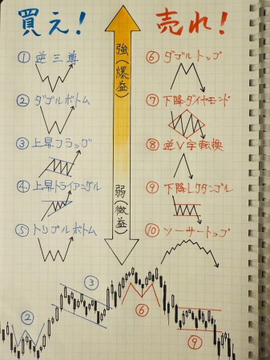 買え！
売れ！
強(爆益)
弱(微益)
① 逆三尊
② ダブルボトム
③ 上昇フラッグ
④ 上昇トライアングル
⑤ トリプルボトム
⑥ ダブルトップ
⑦ 下降ダイヤモンド
⑧ 逆V字転換
⑨ 下降レクタングル
⑩ ソーサートップ
②
③
⑥
⑨